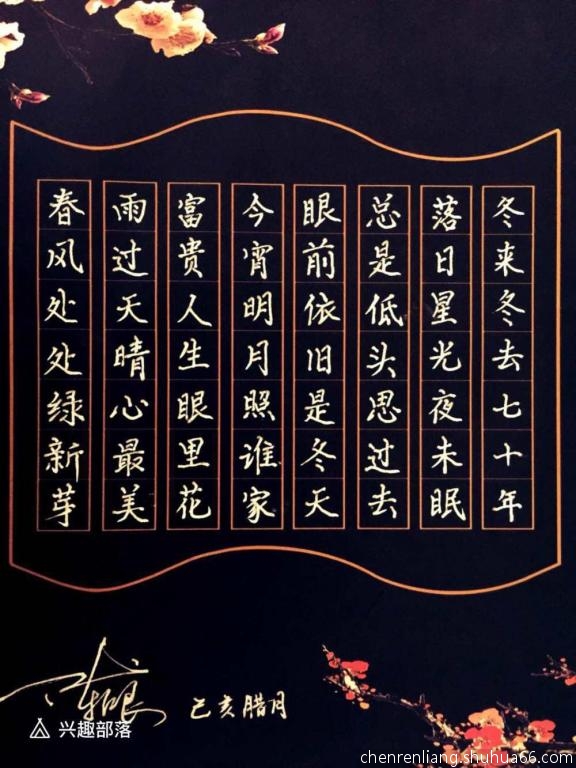 冬来冬去七十年
落日星光夜未眠
总是低头思过去
眼前依旧是冬天
今宵明月照谁家
富贵人生眼里花
雨过天晴心最美
春风处处绿新芽
己亥腊月
兴趣部落
chenrenliang.shuhua66.com